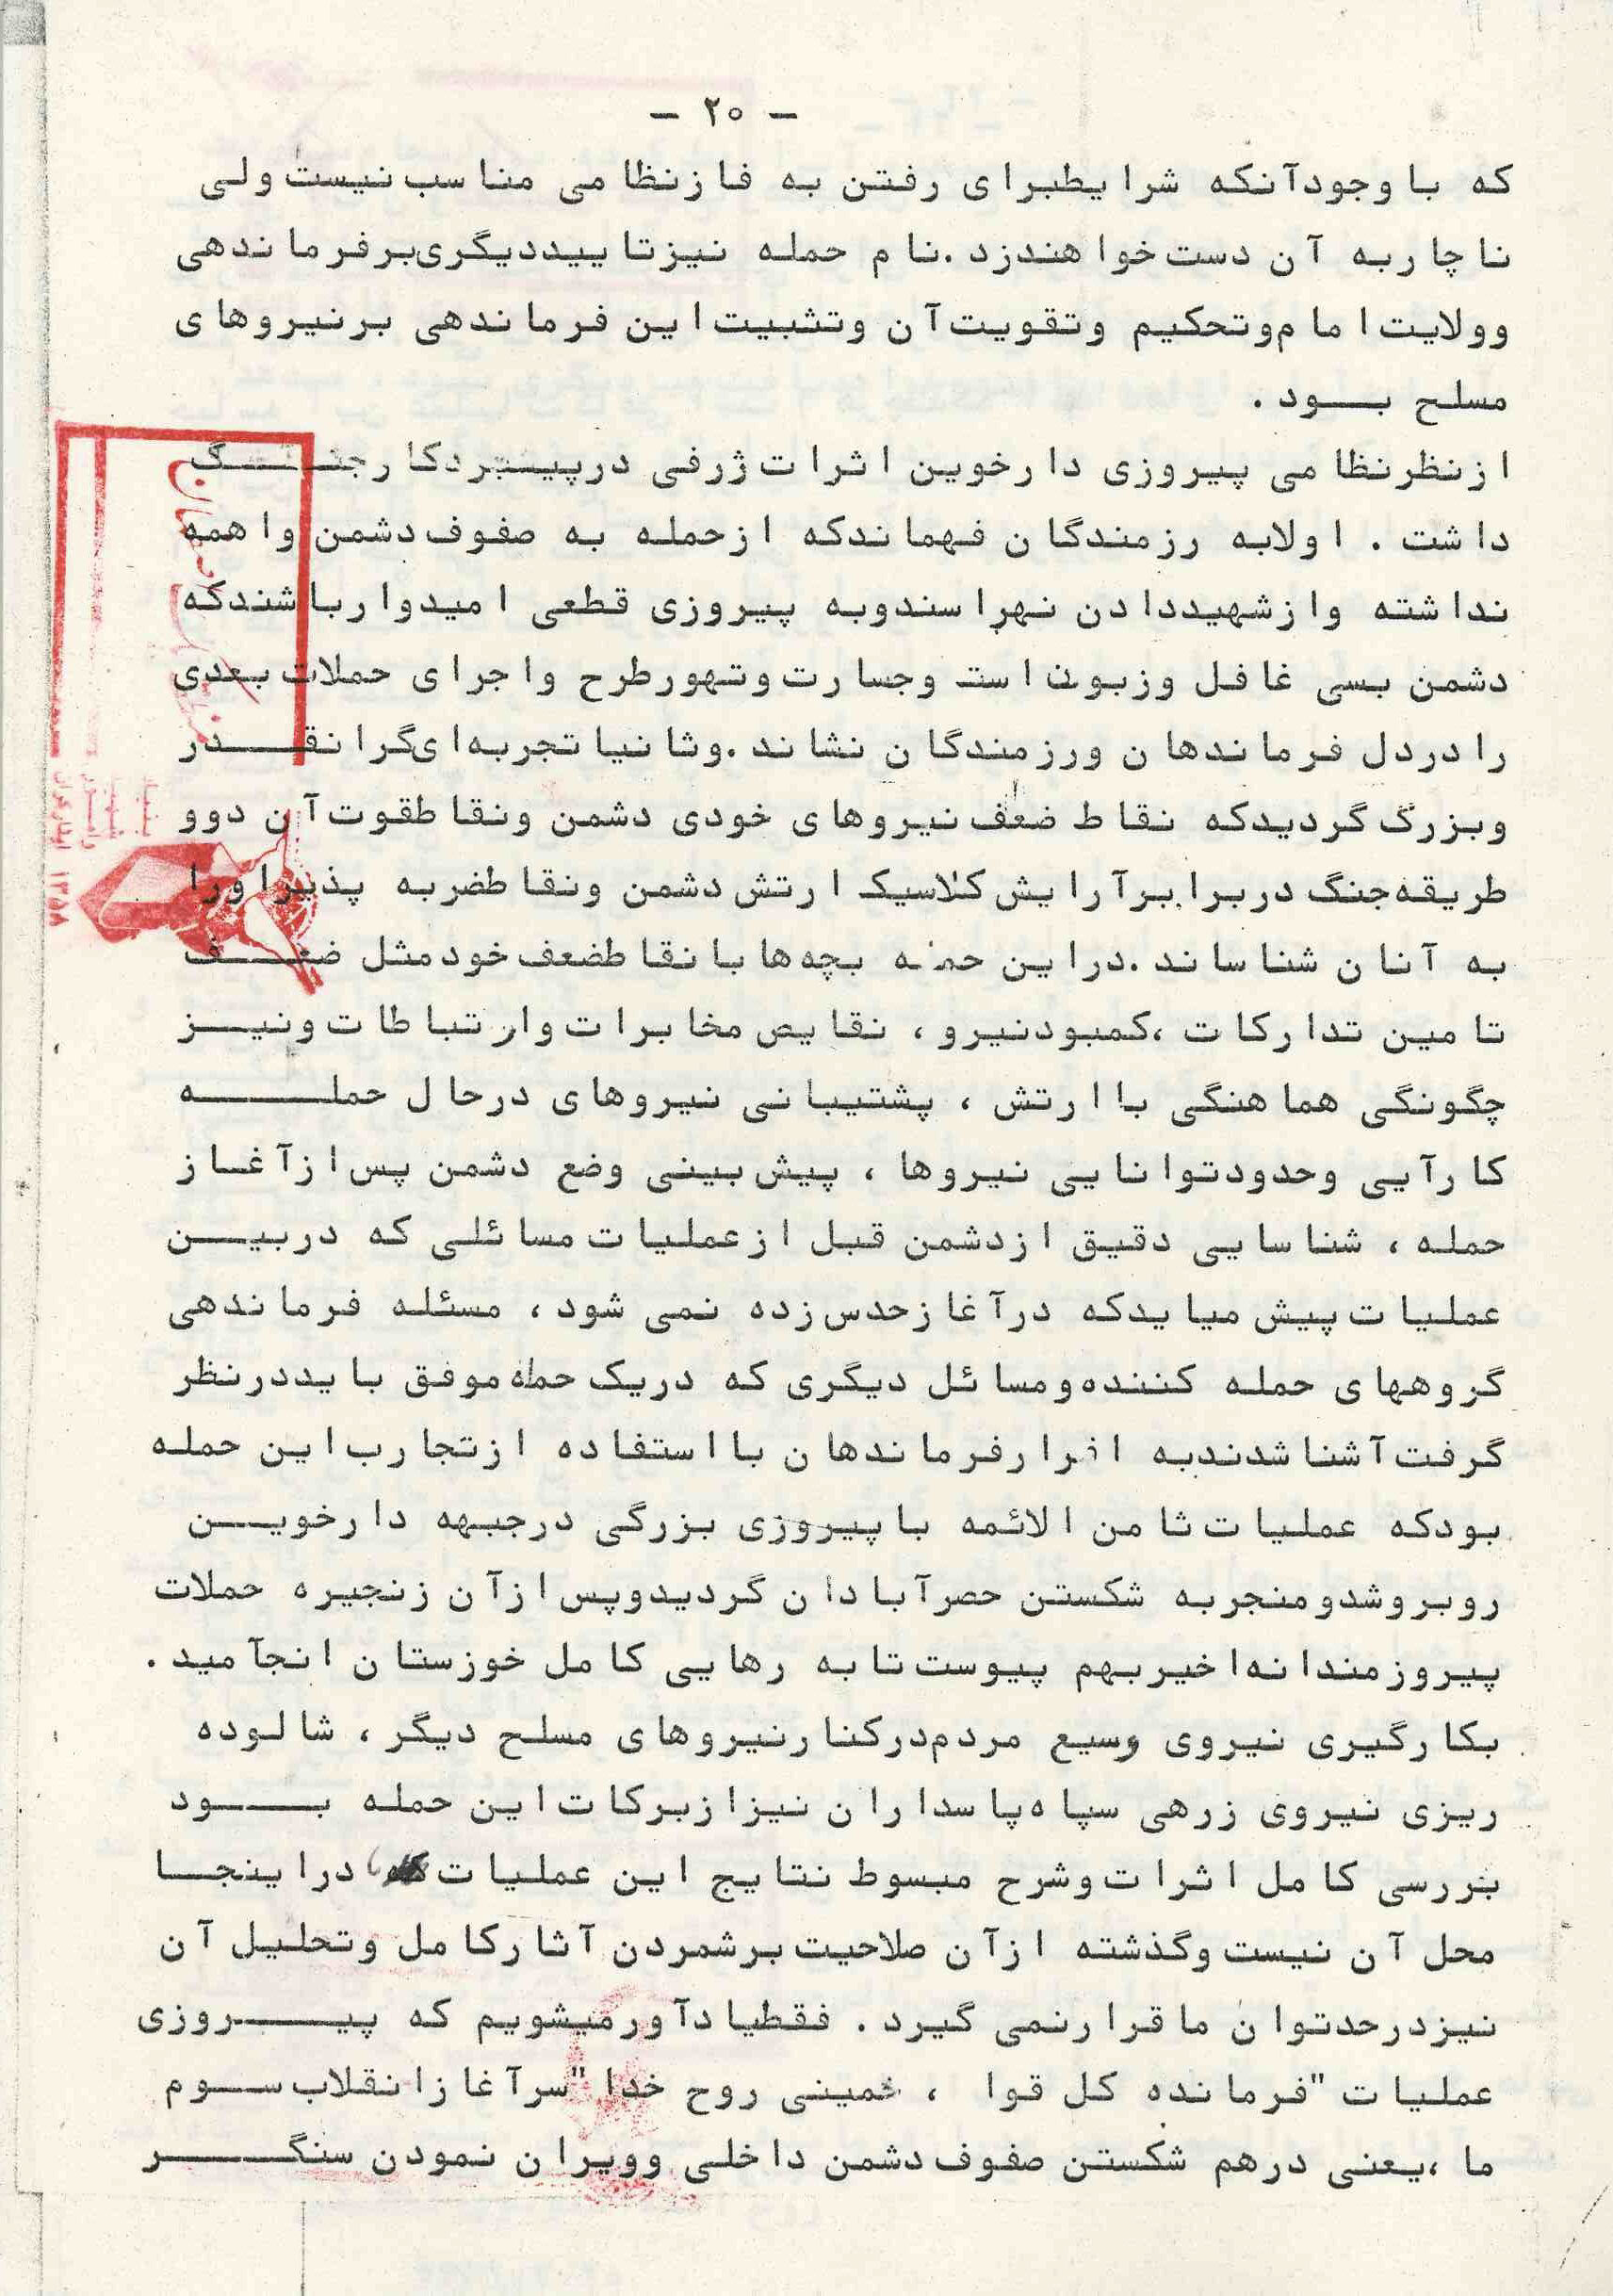 - ۲۰ -
که با وجودآنکه شرایط برای رفتن به فاز نظامی مناسب نیست ولی
ناچار به آن دست خواهند زد. نام حمله نیز تایید دیگری بر فرماندهی
و ولایت امام و تحکیم و تقویت آن و تثبیت این فرماندهی بر نیروهای
مسلح بود.
از نظر نظامی پیروزی دارخوین اثرات ژرفی در پیشبرد کار جنگ
داشت. اولا به رزمندگان فهماند که از حمله به صفوف دشمن واهمه
نداشته و از شهید دادن نهراسند و به پیروزی قطعی امیدوار باشند که
دشمن بسی غافل و زبون است و جسارت و تهور طرح و اجرای حملات بعدی
را در دل فرماندهان و رزمندگان نشاند. و ثانیا تجربه‌ای گرانقدر
و بزرگ گردید که نقاط ضعف نیروهای خودی دشمن و نقاط قوت آن دو و
طریقه جنگ در برابر آرایش کلاسیک ارتش دشمن و نقاط ضربه پذیر او را
به آنان شناساند. در این حمله بچه‌ها با نقاط ضعف خود مثل ضعف
تامین تدارکات، کمبود نیرو، نقایص مخابرات و ارتباطات و نیز
چگونگی هماهنگی با ارتش، پشتیبانی نیروهای در حال حمله
کارآیی و حدود توانایی نیروها، پیش بینی وضع دشمن پس از آغاز
حمله، شناسایی دقیق از دشمن قبل از عملیات مسائلی که در بین
عملیات پیش میاید که در آغاز حدس زده نمی شود، مسئله فرماندهی
گروههای حمله کننده و مسائل دیگری که در یک حمله موفق باید در نظر
گرفت آشنا شدند به اقرار فرماندهان با استفاده از تجارب این حمله
بود که عملیات ثامن الائمه با پیروزی بزرگی در جبهه دارخوین
روبرو شد و منجر به شکستن حصر آبادان گردید و پس از آن زنجیره حملات
پیروزمندانه اخیر بهم پیوست تا به رهایی کامل خوزستان انجآمید.
بکارگیری نیروی وسیع مردم در کنار نیروهای مسلح دیگر، شالوده
ریزی نیروی زرهی سپاه پاسداران نیز از برکات این حمله بود
بررسی کامل اثرات و شرح مبسوط نتایج این عملیات در اینجا
محل آن نیست و گذشته از آن صلاحیت برشمردن آثار کامل و تحلیل آن
نیز در حد توان ما قرار نمی گیرد. فقط یادآور میشویم که پیروزی
عملیات "فرمانده کل قوا، خمینی روح خدا" سرآغاز انقلاب سوم
ما، یعنی درهم شکستن صفوف دشمن داخلی و ویران نمودن سنگر
۱۳۵۸